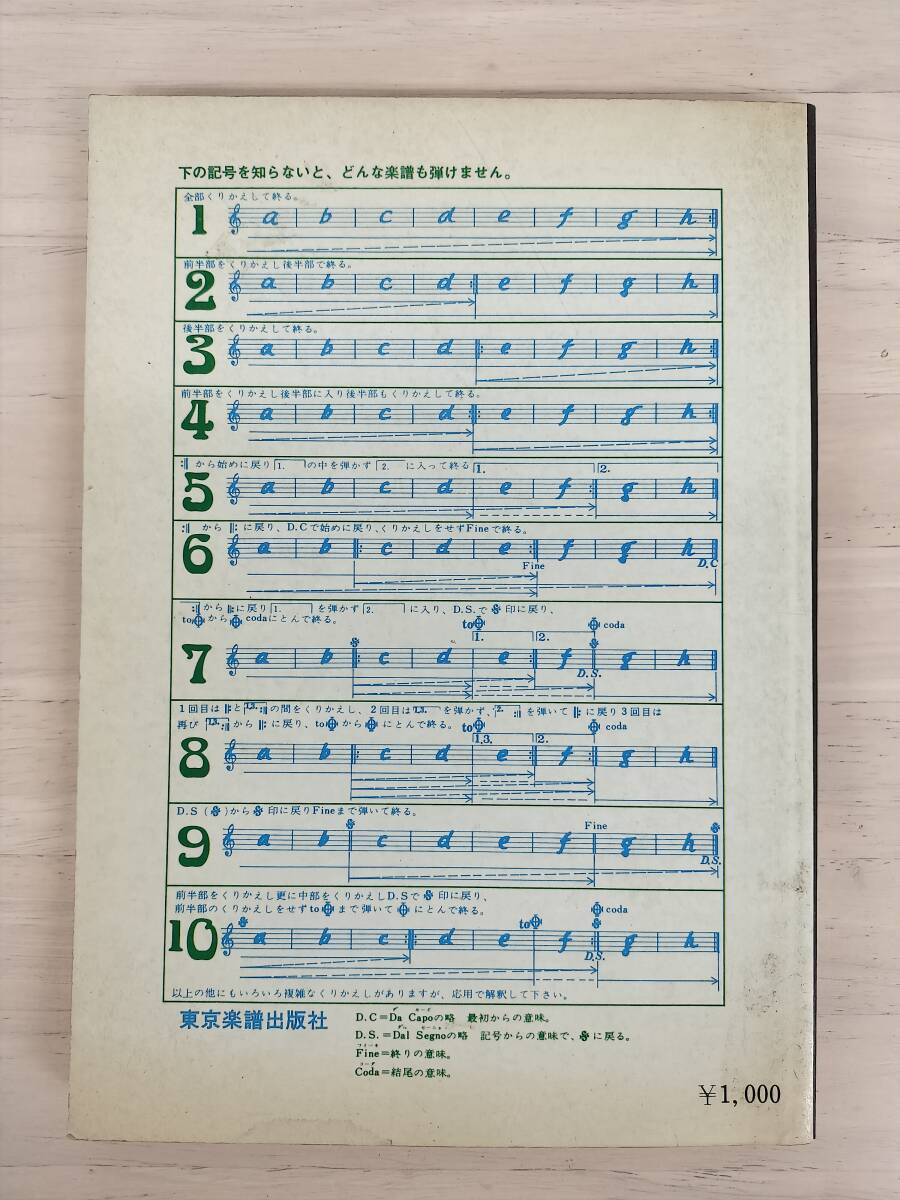 下の記号を知らないと、どんな楽譜も弾けません。
全部くりかえして終る。
1 a b c d e f g h
前半部をくりかえし後半部で終る。
2 a b c d e f g h
後半部をくりかえして終る。
3 a b c d e f g h
前半部をくりかえし後半部に入り後半部もくりかえして終る。
4 a b c d e f g h
から始めに戻り 1. の中を弾かず 2. に入って終る 1. 2.
5 a b c d e f g h
から に戻り、D.Cで始めに戻り、くりかえしをせずFineで終る。
6 a b c d e f g h
Fine D.C
から に戻り 1. を弾かず 2. に入り、D.S.で 印に戻り、
to から codaにとんで終る。 to coda
1. 2.
7 a b c d e f g h
D.S.
1回目は と 1.3. の間をくりかえし、2回目は 1.3. を弾かず、 2. を弾いて に戻り3回目は
再び 1.3. から に戻り、to から にとんで終る。 to coda
1.3. 2.
8 a b c d e f g h
D.S ( )から 印に戻りFineまで弾いて終る。
Fine
9 a b c d e f g h
D.S.
前半部をくりかえし更に中部をくりかえしD.Sで 印に戻り、
前半部のくりかえしをせずto まで弾いて にとんで終る。 coda
to
10 a b c d e f g h
D.S.
以上の他にもいろいろ複雑なくりかえしがありますが、応用で解釈して下さい。
東京楽譜出版社
D.C=Da Capoの略 最初からの意味。
D.S.=Dal Segnoの略 記号からの意味で、 に戻る。
Fine=終りの意味。
Coda=結尾の意味。
￥1,000